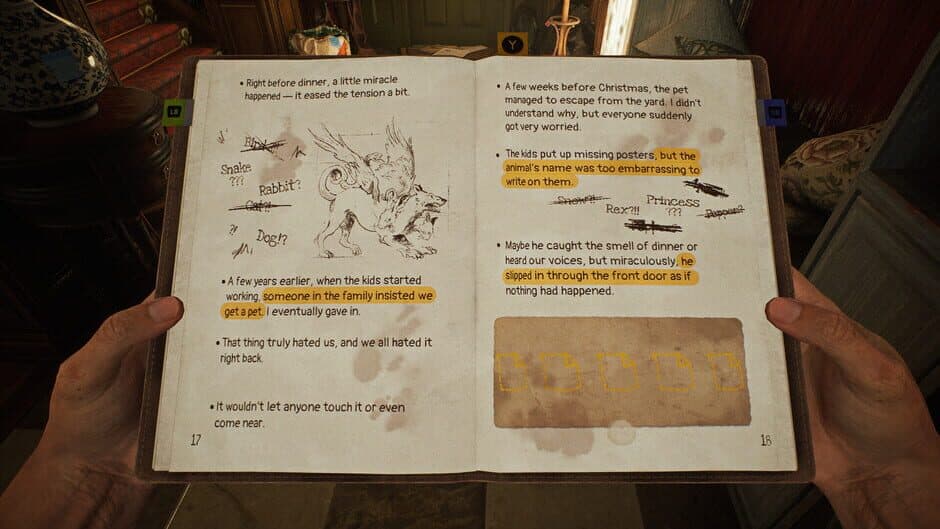 Y
LB
• Right before dinner, a little miracle
happened — it eased the tension a bit.
Snake
???
Rabbit?
Cat?
?!
Dog!?
• A few years earlier, when the kids started
working, someone in the family insisted we
get a pet. I eventually gave in.
• That thing truly hated us, and we all hated it
right back.
• It wouldn't let anyone touch it or even
come near.
17
• A few weeks before Christmas, the pet
managed to escape from the yard. I didn't
understand why, but everyone suddenly
got very worried.
• The kids put up missing posters, but the
animal's name was too embarrassing to
write on them.
Snow?!
Rex?!!
Princess
???
Pepper?
• Maybe he caught the smell of dinner or
heard our voices, but miraculously, he
slipped in through the front door as if
nothing had happened.
18